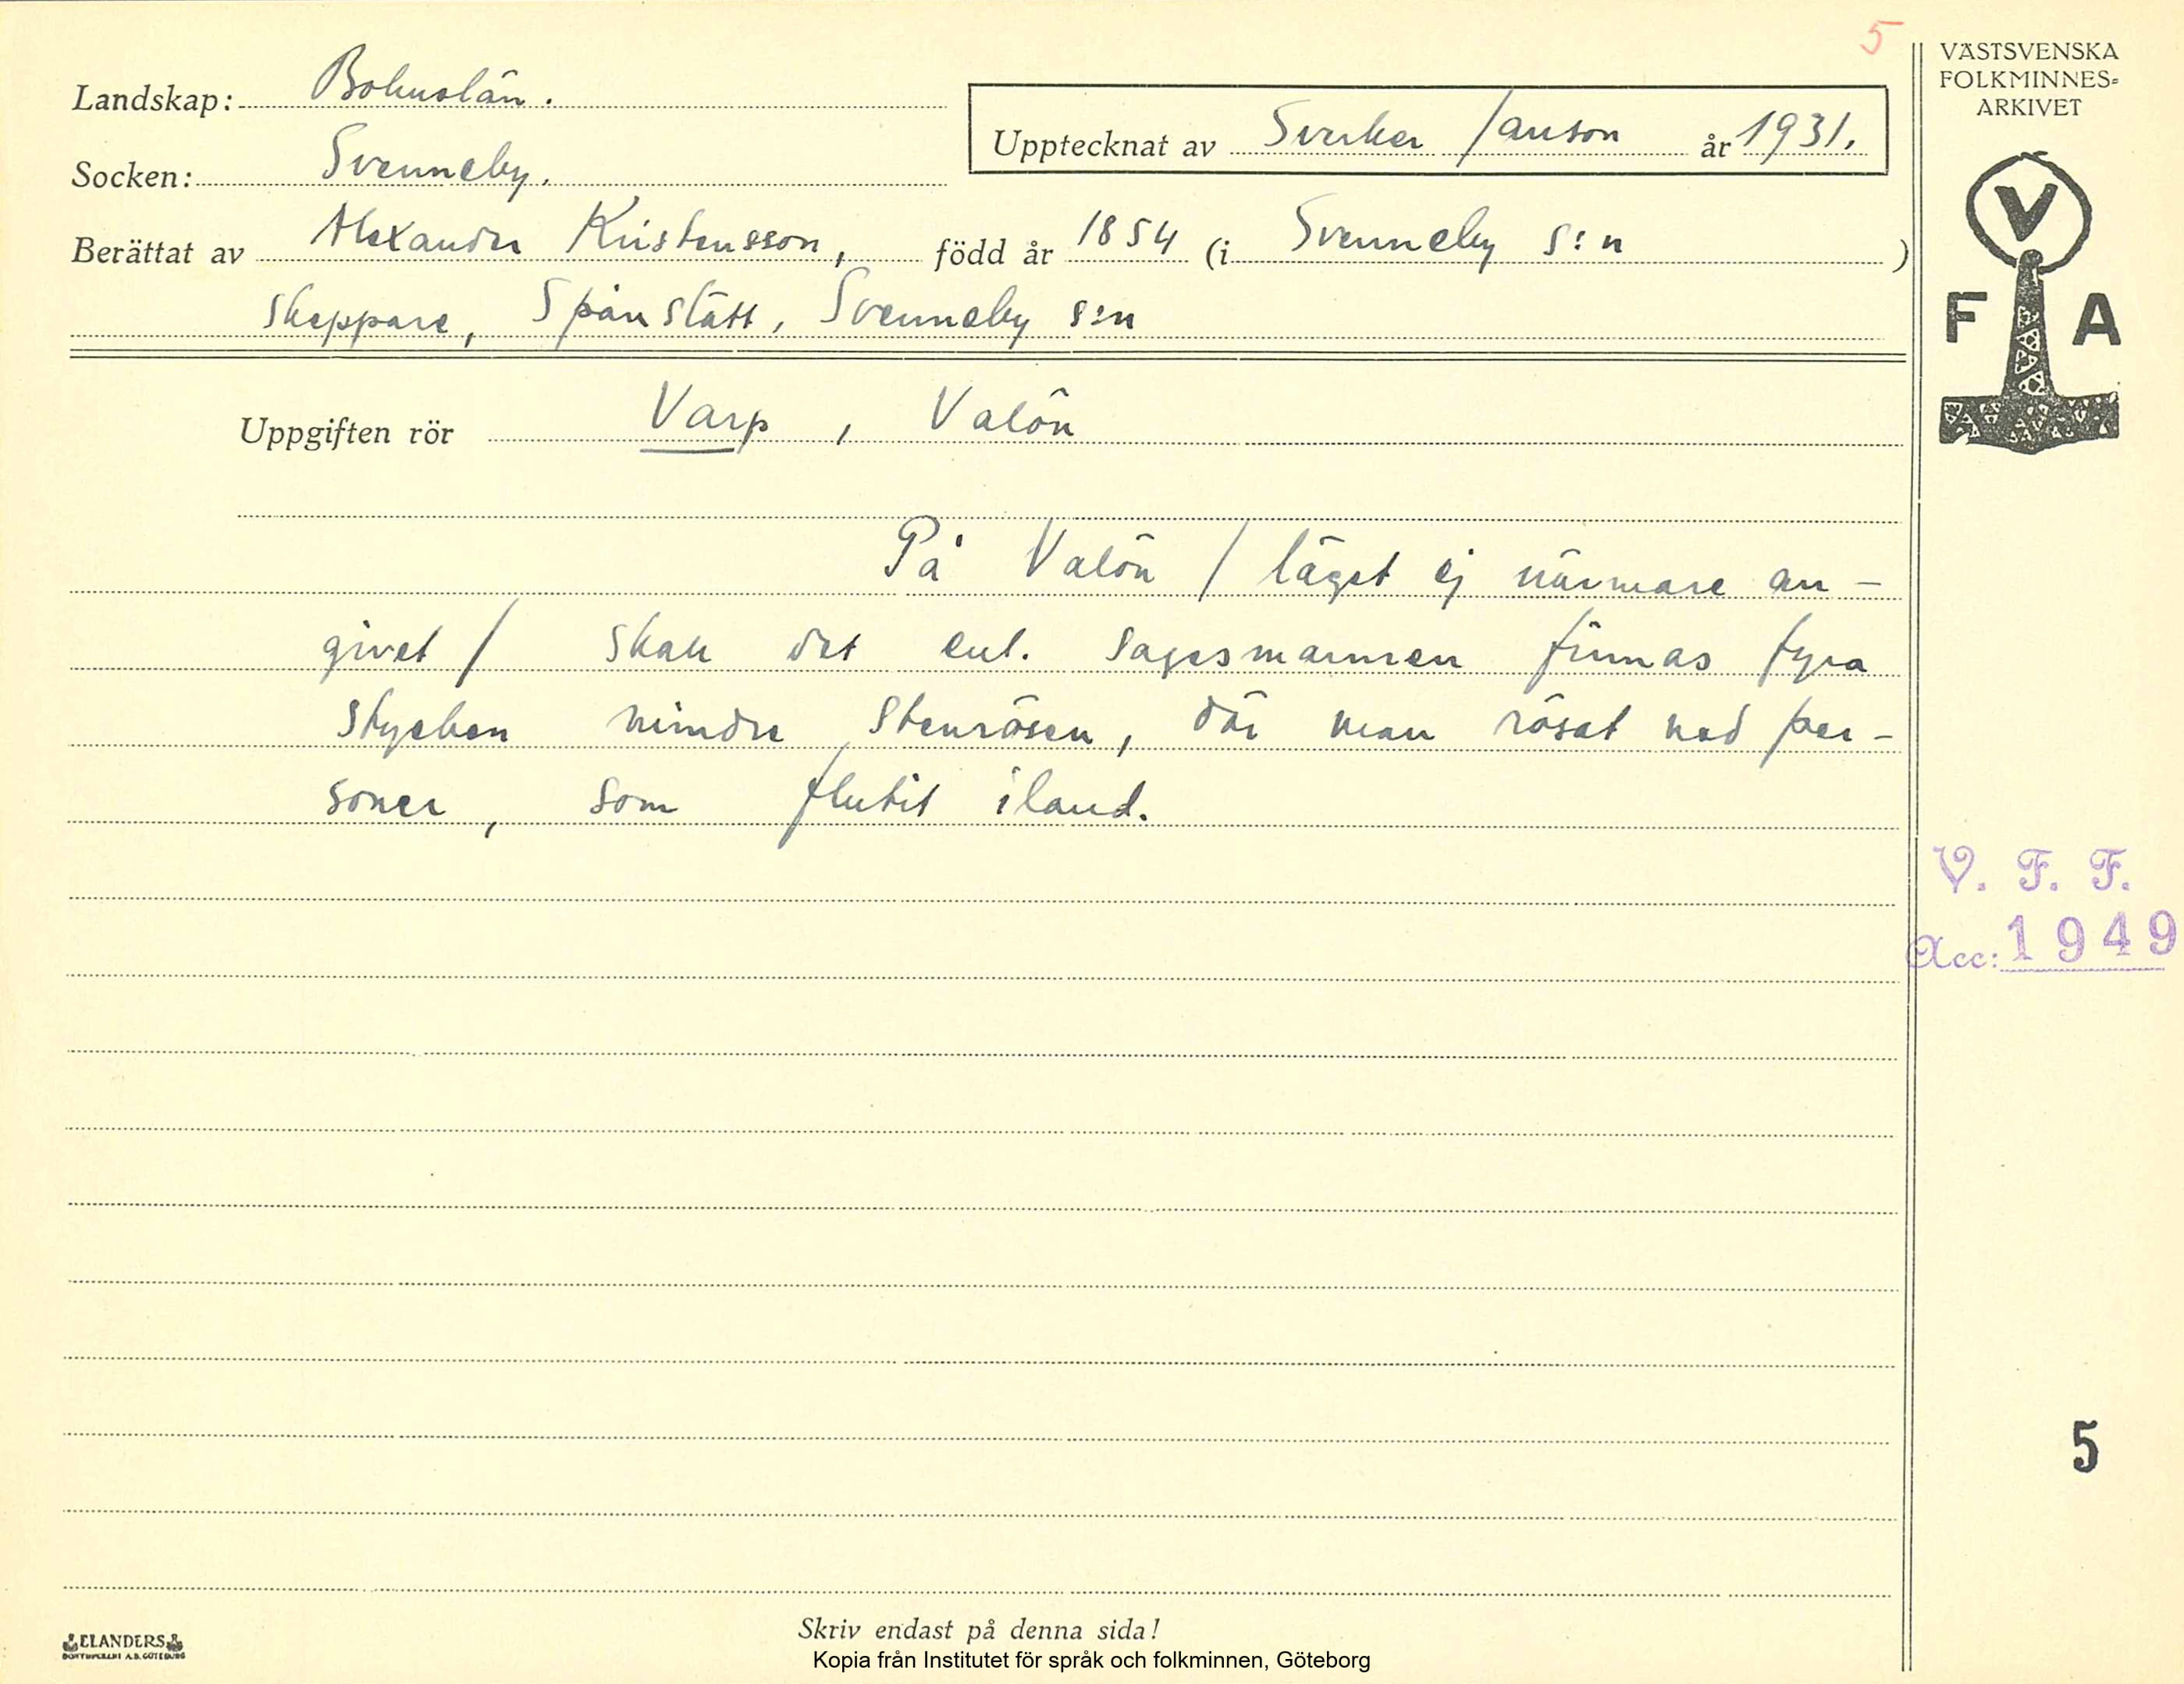 5
VÄSTSVENSKA
FOLKMINNES-
ARKIVET
Landskap: Bohuslän.
Upptecknat av Sverker Janson år 1931.
Socken: Svenneby.
Berättat av Alexander Kristensson, född år 1854 (i Svenneby s:n )
skeppare, Spånslätt, Svenneby s:n
V
F A
Uppgiften rör Varp, Valön
På Valön / läget ej närmare an-
givet / skall det enl. sagesmannen finnas fyra
stycken mindre stenrösen, där man rösat ned per-
soner, som flutit iland.
V. F. F.
Acc: 1949
5
Skriv endast på denna sida!
ELANDERS
BOKTRYCKERI A.B. GÖTEBORG
Kopia från Institutet för språk och folkminnen, Göteborg